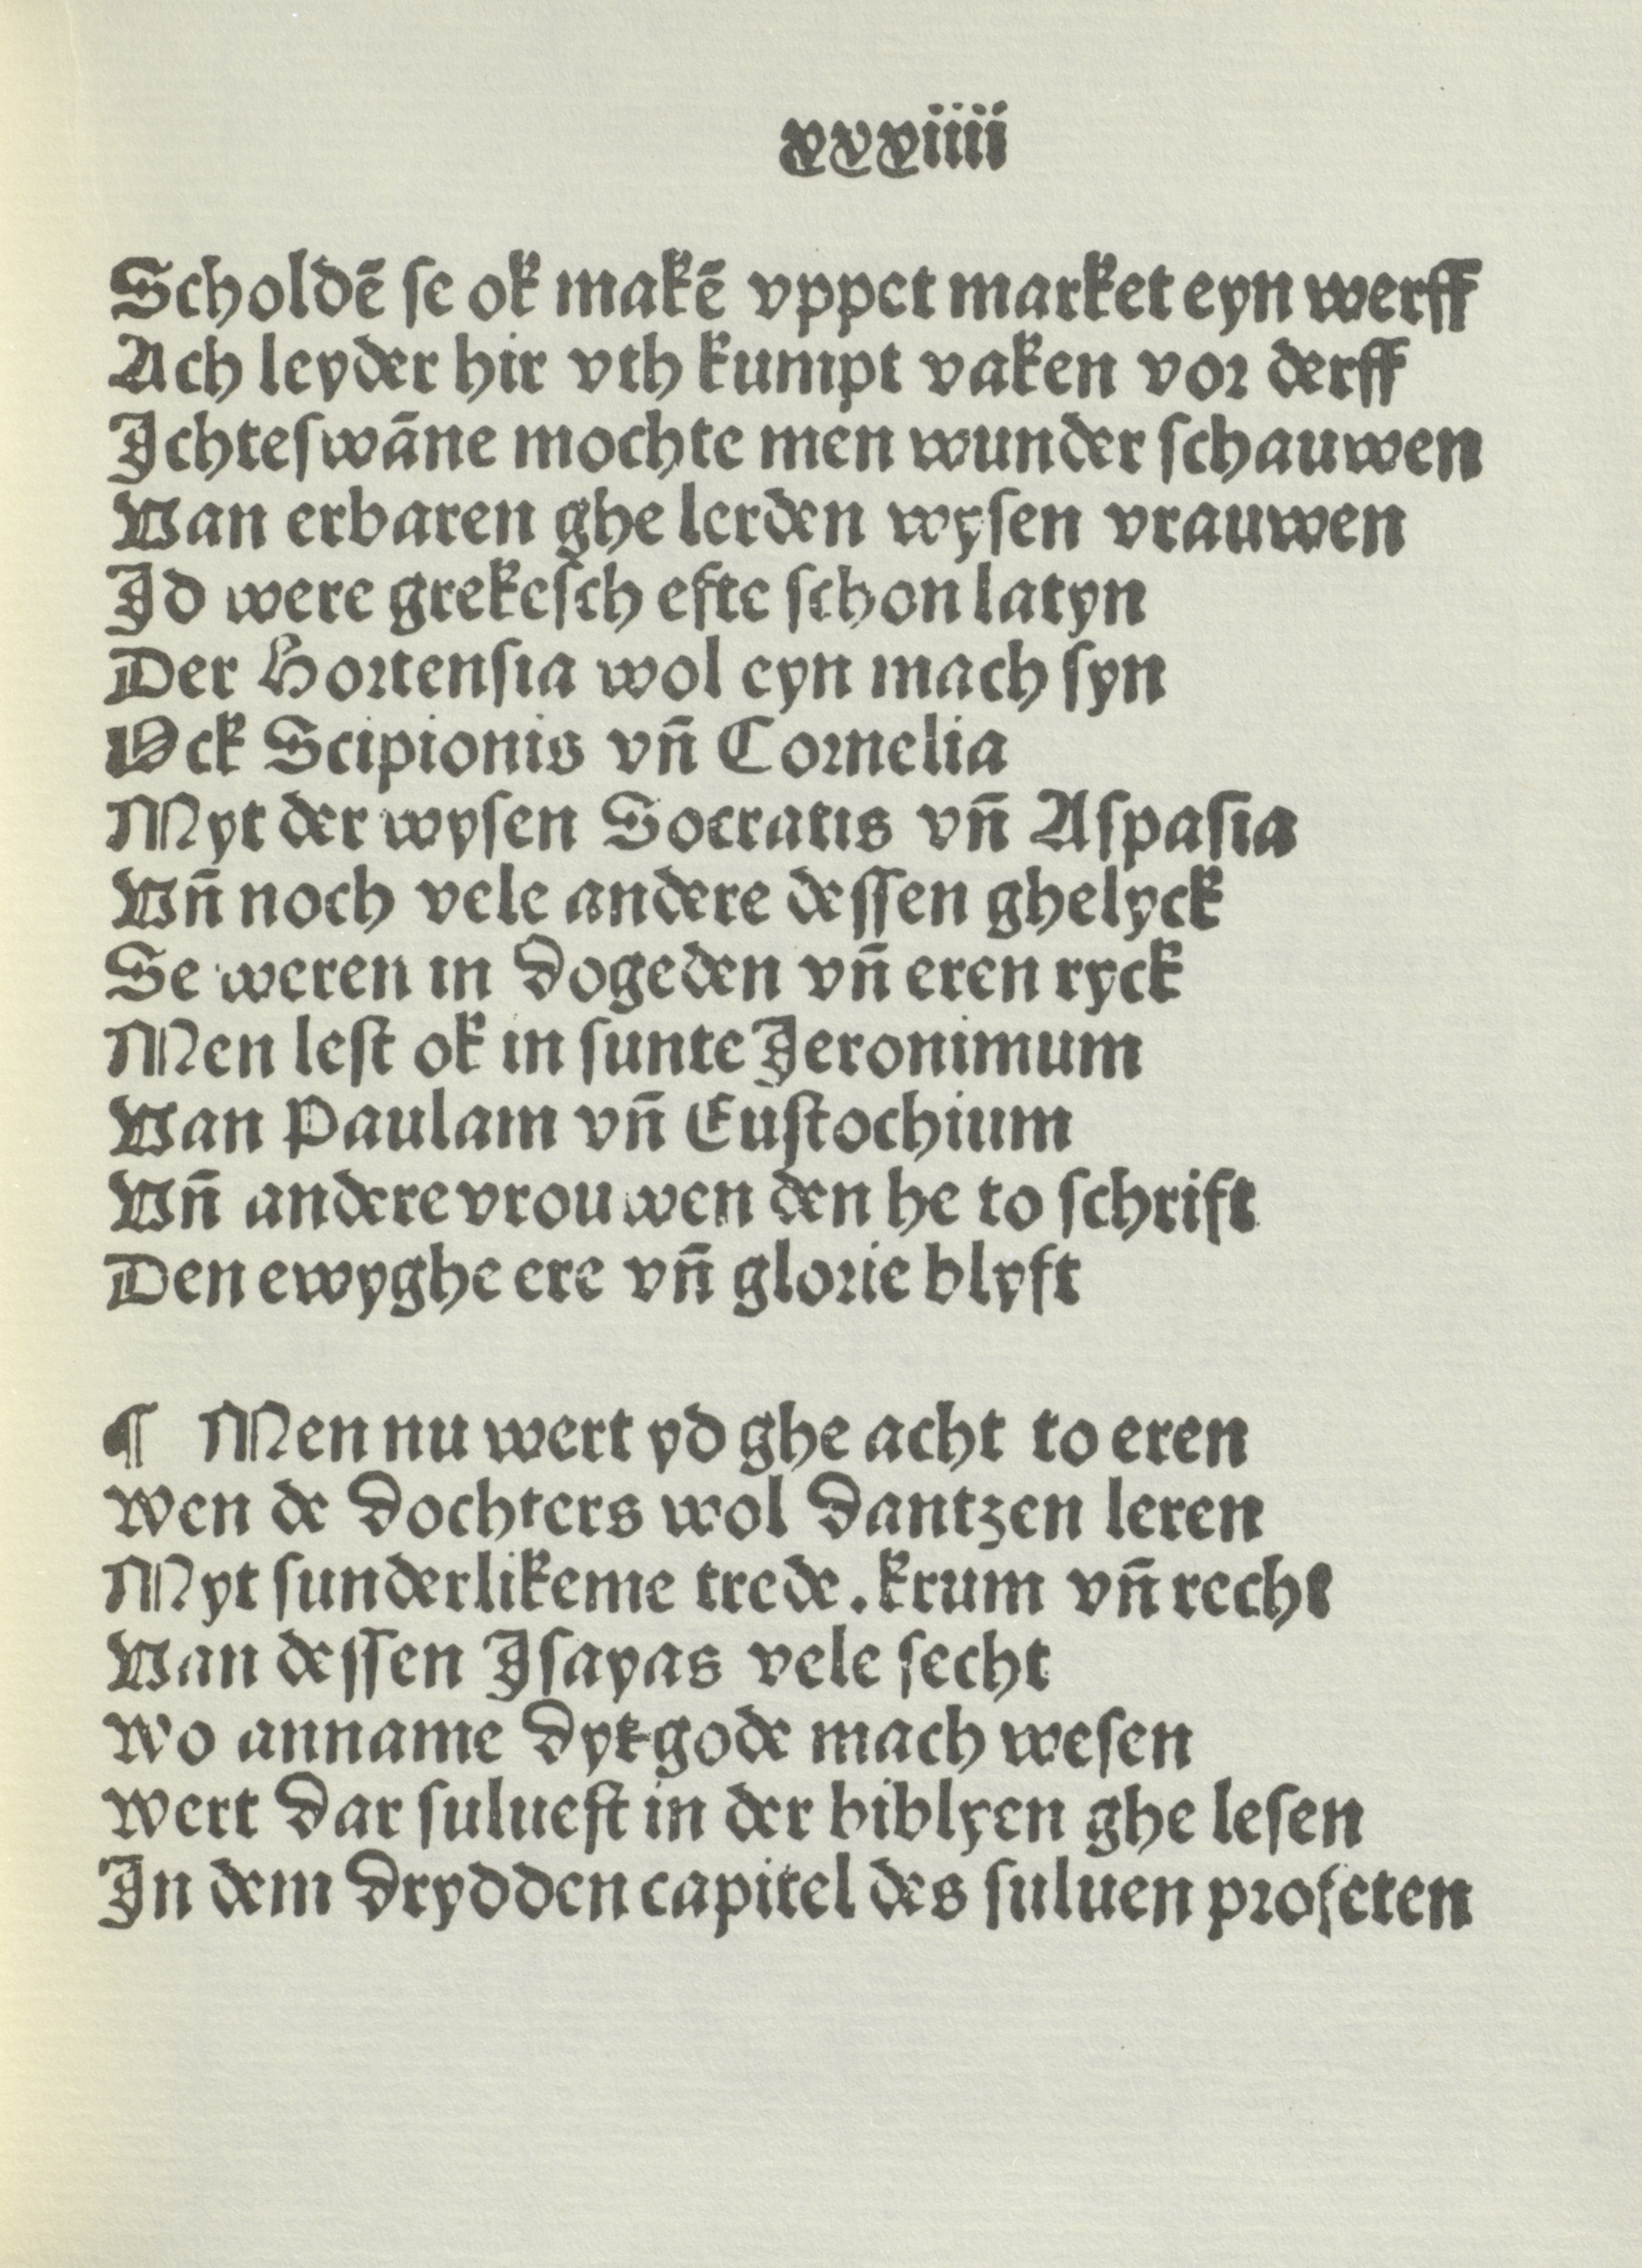 xxxiiii
Scholdē se ok makē vppet market eyn werff
Ach leyder hir vth kumpt vaken vor derff
Ichteswāne mochte men wunder schauwen
Van erbaren ghe lerden wysen vrauwen
Id were grekesch efte schon latyn
Der Hortensia wol eyn mach syn
Ock Scipionis vñ Cornelia
Myt der wysen Socratis vñ Aspasia
Vñ noch vele andere dessen ghelyck
Se weren in dogeden vñ eren ryck
Men lest ok in sunte Jeronimum
Van Paulam vñ Eustochium
Vñ andere vrouwen den he to schrift
Den ewyghe ere vñ glorie blyft
¶ Men nu wert yd ghe acht to eren
Wen de dochters wol dantzen leren
Myt sunderlikeme trede. krum vñ recht
Van dessen Isayas vele secht
Wo anname dyt gode mach wesen
Wert dar sulueſt in der biblyen ghe lesen
In dem drydden capitel des suluen profeten